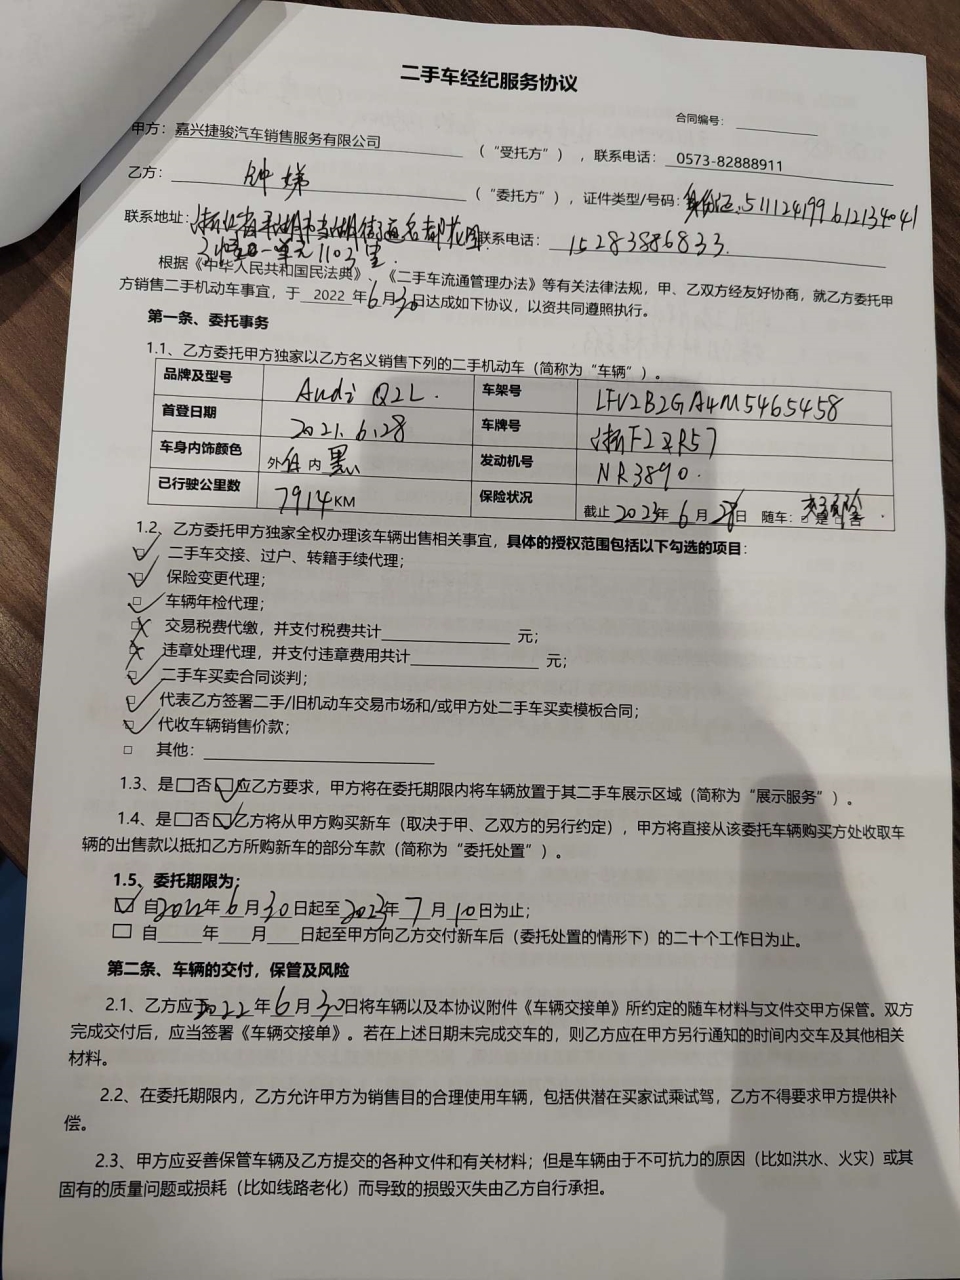 二手车经纪服务协议
合同编号：
甲方：嘉兴捷骏汽车销售服务有限公司 （“受托方”），联系电话：0573-82888911
乙方：钟娣 （“委托方”），证件类型/号码：身份证.511124199612134041
联系地址：浙江省平湖市当湖街道名都花园 联系电话：15283886833.
3幢一单元1103室.
根据《中华人民共和国民法典》、《二手车流通管理办法》等有关法律法规，甲、乙双方经友好协商，就乙方委托甲
方销售二手机动车事宜，于 2022 年6月30日达成如下协议，以资共同遵照执行。
第一条、委托事务
1.1、乙方委托甲方独家以乙方名义销售下列的二手机动车（简称为“车辆”）。
品牌及型号 Audi Q2L. 车架号 LFV2B2GA4M5465458
首登日期 2021.6.28 车牌号 浙F2R57
车身内饰颜色 外白内黑 发动机号 NR3890.
已行驶公里数 7914KM 保险状况 截止2023年6月28日 随车：□是□否
1.2、乙方委托甲方独家全权办理该车辆出售相关事宜，具体的授权范围包括以下勾选的项目：
☑ 二手车交接、过户、转籍手续代理；
☑ 保险变更代理；
☑ 车辆年检代理；
☒ 交易税费代缴，并支付税费共计 元；
☒ 违章处理代理，并支付违章费用共计 元；
☑ 二手车买卖合同谈判；
☑ 代表乙方签署二手/旧机动车交易市场和/或甲方处二手车买卖模板合同；
☑ 代收车辆销售价款；
□ 其他：
1.3、是□否☑应乙方要求，甲方将在委托期限内将车辆放置于其二手车展示区域（简称为“展示服务”）。
1.4、是□否☑乙方将从甲方购买新车（取决于甲、乙双方的另行约定），甲方将直接从该委托车辆购买方处收取车
辆的出售款以抵扣乙方所购新车的部分车款（简称为“委托处置”）。
1.5、委托期限为：
☑ 自2022年6月30日起至2023年7月10日为止；
□ 自 年 月 日起至甲方向乙方交付新车后（委托处置的情形下）的二十个工作日为止。
第二条、车辆的交付，保管及风险
2.1、乙方应于2022年6月30日将车辆以及本协议附件《车辆交接单》所约定的随车材料与文件交甲方保管。双方
完成交付后，应当签署《车辆交接单》。若在上述日期未完成交车的，则乙方应在甲方另行通知的时间内交车及其他相关
材料。
2.2、在委托期限内，乙方允许甲方为销售目的合理使用车辆，包括供潜在买家试乘试驾，乙方不得要求甲方提供补
偿。
2.3、甲方应妥善保管车辆及乙方提交的各种文件和有关材料；但是车辆由于不可抗力的原因（比如洪水、火灾）或其
固有的质量问题或损耗（比如线路老化）而导致的损毁灭失由乙方自行承担。